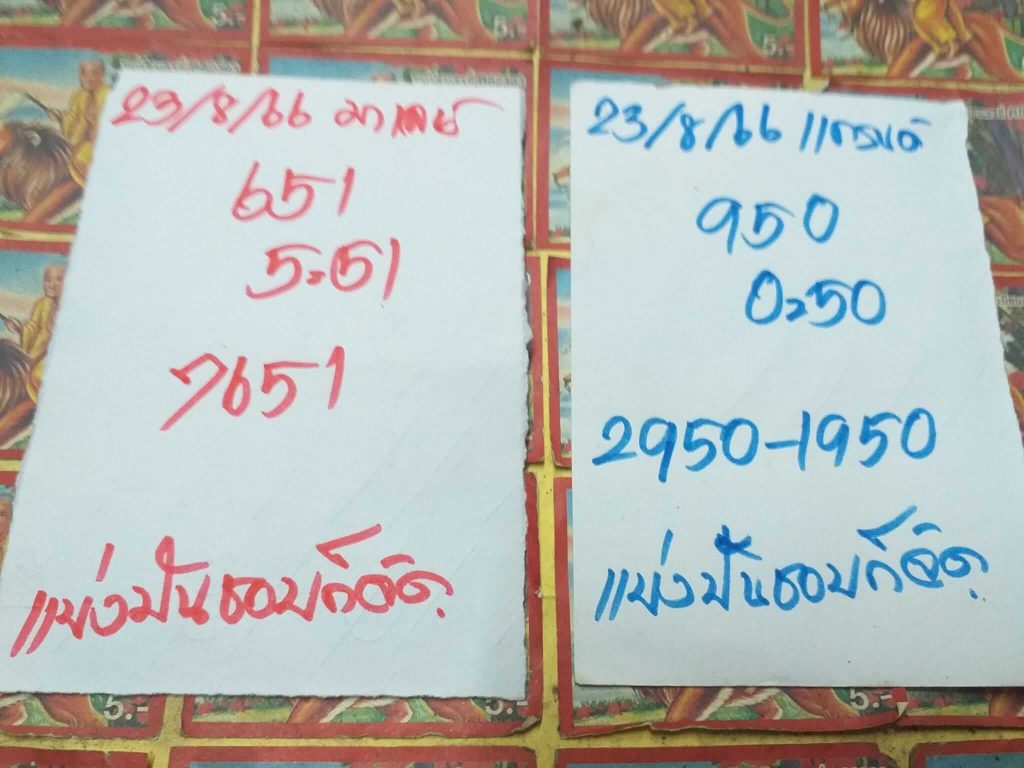 23/8/66 มาเลย์
651
5=51
7651
แบ่งปันชอบก็จัด
23/8/66 แกรนด์
950
0=50
2950-1950
แบ่งปันชอบก็จัด
5.-
5.-
5.-
5.-